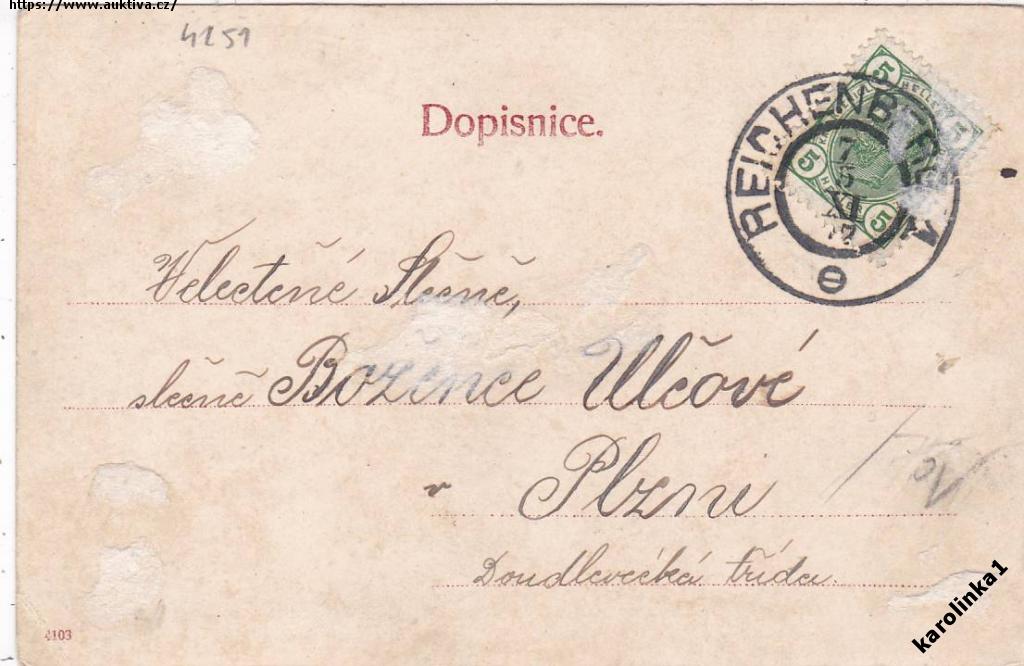 https://www.auktiva.cz/
4251
Dopisnice.
REICHENBERG
5 5 5
7
5
XI
e
Velectěné Slečně,
slečně Božence Ulčové
v Plzni
Doudlevecká třída.
4103
karolinka1